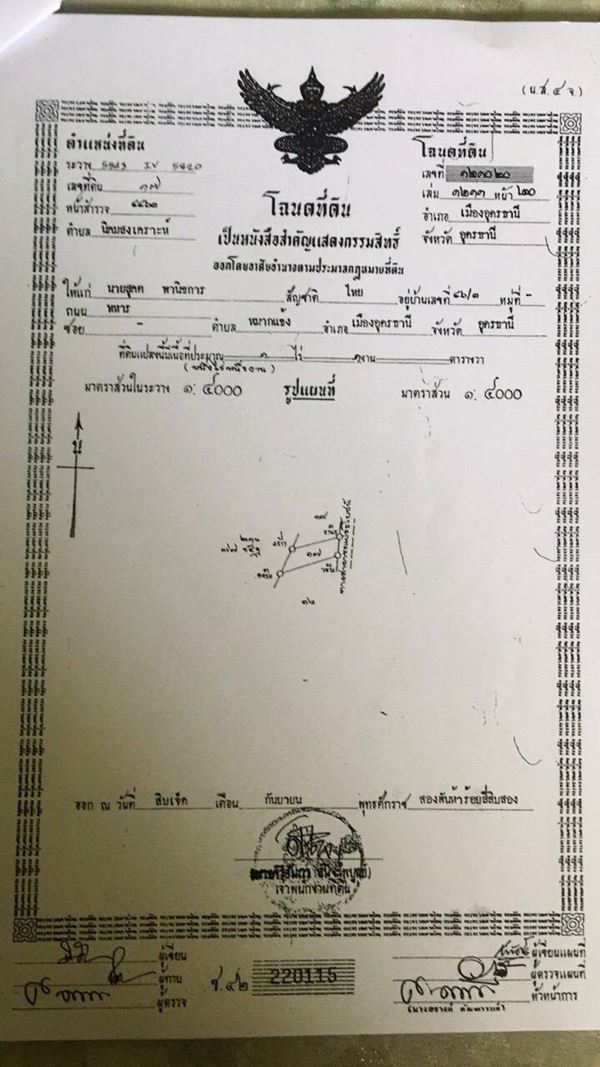 (น.ส.๔ จ.)
ตำแหน่งที่ดิน
ระวาง 5543 IV 5420
เลขที่ดิน ๑๗
หน้าสำรวจ
ตำบล นิคมสงเคราะห์
โฉนดที่ดิน
เลขที่ ๑๒๑๐๒๐
เล่ม ๑๒๑๑ หน้า ๒๐
อำเภอ เมืองอุดรธานี
จังหวัด อุดรธานี
โฉนดที่ดิน
เป็นหนังสือสำคัญแสดงกรรมสิทธิ์
ออกโดยอาศัยอำนาจตามประมวลกฎหมายที่ดิน
ให้แก่ นาย พานิชการ สัญชาติ ไทย อยู่บ้านเลขที่ ๔๖/๑ หมู่ที่ -
ถนน ทหาร
ซอย - ตำบล หมากแข้ง อำเภอ เมืองอุดรธานี จังหวัด อุดรธานี
ที่ดินแปลงนี้มีเนื้อที่ประมาณ ๑ ไร่ ๑ งาน ตารางวา
(หนึ่งไร่หนึ่งงาน)
มาตราส่วนในระวาง ๑:๔๐๐๐ รูปแผนที่ มาตราส่วน ๑:๔๐๐๐
น
ทางสาธารณประโยชน์
ออก ณ วันที่ สิบเจ็ด เดือน กันยายน พุทธศักราช สองพันห้าร้อยสี่สิบสอง
เจ้าพนักงานที่ดิน
ผู้เขียน
ผู้ทาน
ผู้ตรวจ
220115
ผู้เขียนแผนที่
ผู้ตรวจแผนที่
หัวหน้าการ